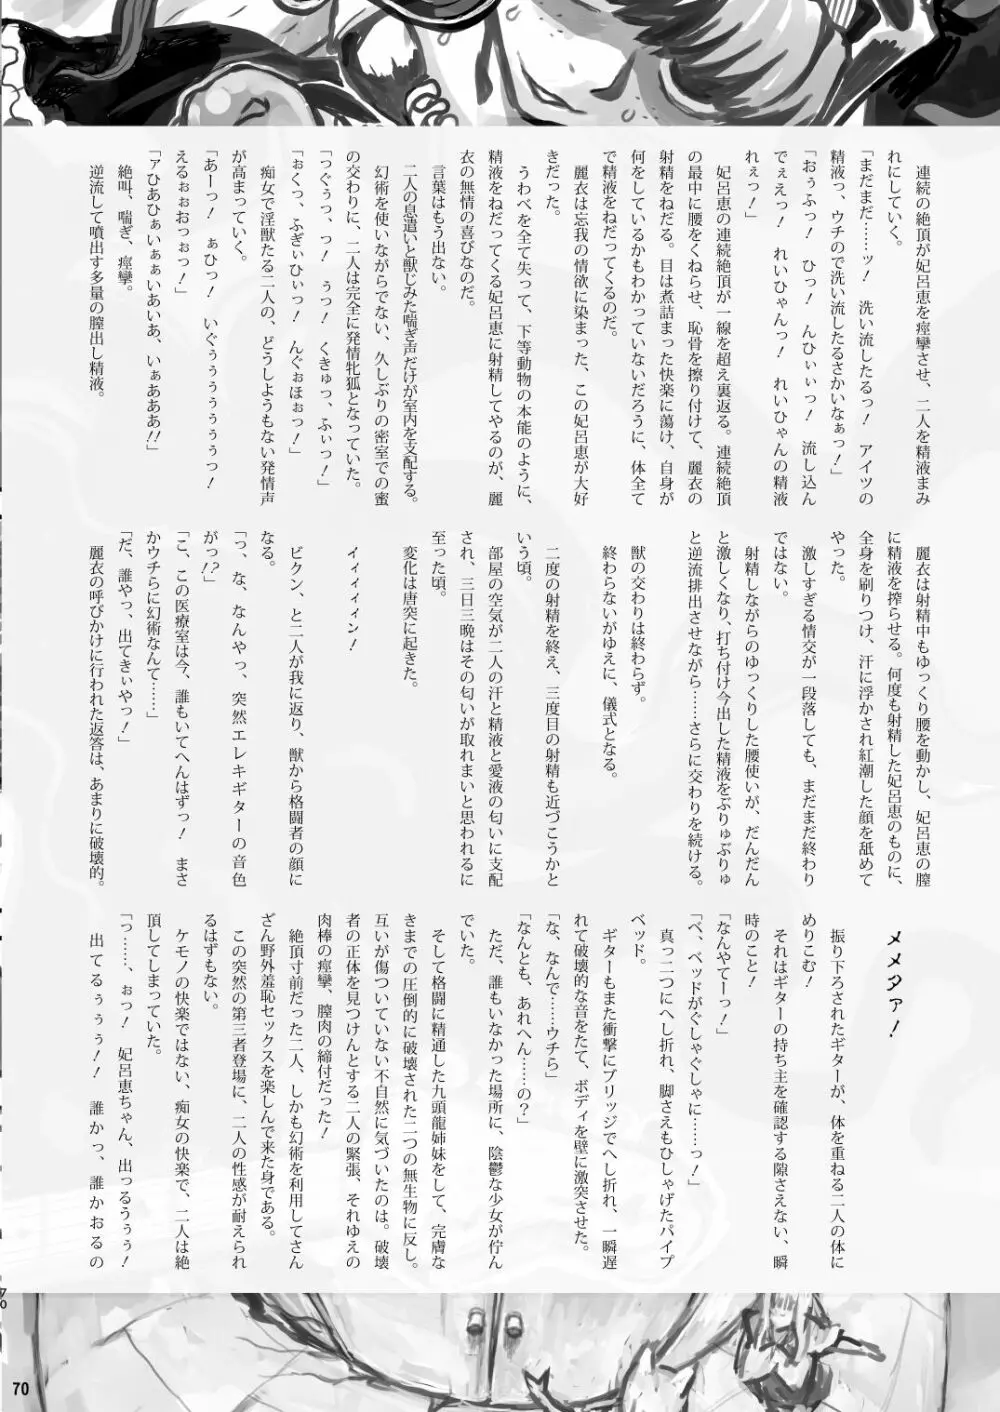 連続の絶頂が妃呂恵を痙攣させ、二人を精液まみ
れにしていく。
「まだまだ……ッ！　洗い流したるっ！　アイツの
精液っ、ウチので洗い流したるさかいなぁっ！」
「おぅふっ！　ひっ！　んひぃぃっ！　流し込ん
でぇえっ！　れいひゃんっ！　れいひゃんの精液
れぇっ！」
妃呂恵の連続絶頂が一線を超え裏返る。連続絶頂
の最中に腰をくねらせ、恥骨を擦り付けて、麗衣の
射精をねだる。目は煮詰まった快楽に蕩け、自身が
何をしているかもわかっていないだろうに、体全て
で精液をねだってくるのだ。
麗衣は忘我の情欲に染まった、この妃呂恵が大好
きだった。
うわべを全て失って、下等動物の本能のように、
精液をねだってくる妃呂恵に射精してやるのが、麗
衣の無情の喜びなのだ。
言葉はもう出ない。
二人の息遣いと獣じみた喘ぎ声だけが室内を支配する。
幻術を使いながらでない、久しぶりの密室での蜜
の交わりに、二人は完全に発情牝狐となっていた。
「つぐぅっ、っ！　ぅっ！　くきゅっ、ふぃっ！」
「ぉくっ、ふぎぃひぃっ！　んぐぉほぉっ！」
痴女で淫獣たる二人の、どうしようもない発情声
が高まっていく。
「あーっ！　ぁひっ！　いぐぅぅぅぅぅぅぅっ！
えるぉぉおっぉっ！」
「アひあひぁいぁぁいあいあ、いぁあああ!!」
絶叫、喘ぎ、痙攣。
逆流して噴出す多量の膣出し精液。
麗衣は射精中もゆっくり腰を動かし、妃呂恵の膣
に精液を搾らせる。何度も射精した妃呂恵のものに、
全身を刷りつけ、汗に浮かされ紅潮した顔を舐めて
やった。
激しすぎる情交が一段落しても、まだまだ終わり
ではない。
射精しながらのゆっくりした腰使いが、だんだん
と激しくなり、打ち付け今出した精液をぶりゅぶりゅ
と逆流排出させながら……さらに交わりを続ける。
獣の交わりは終わらず。
終わらないがゆえに、儀式となる。
二度の射精を終え、三度目の射精も近づこうかと
いう頃。
部屋の空気が二人の汗と精液と愛液の匂いに支配
され、三日三晩はその匂いが取れまいと思われるに
至った頃。
変化は唐突に起きた。
イィィィィン！
ビクン、と二人が我に返り、獣から格闘者の顔に
なる。
「つ、な、なんやっ、突然エレキギターの音色
がっ!?」
「こ、この医療室は今、誰もいてへんはずっ！　まさ
かウチらに幻術なんて……」
「だ、誰やっ、出てきぃやっ！」
麗衣の呼びかけに行われた返答は、あまりに破壊的。
メメタァ！
振り下ろされたギターが、体を重ねる二人の体に
めりこむ！
それはギターの持ち主を確認する隙さえない、瞬
時のこと！
「なんやてーっ！」
「べ、ベッドがぐしゃぐしゃに……っ！」
真っ二つにへし折れ、脚さえもひしゃげたパイプ
ベッド。
ギターもまた衝撃にブリッジでへし折れ、一瞬遅
れて破壊的な音をたて、ボディを壁に激突させた。
「な、なんで……ウチら」
「なんとも、あれへん……の？」
ただ、誰もいなかった場所に、陰鬱な少女が佇ん
でいた。
そして格闘に精通した九頭龍姉妹をして、完膚な
きまでの圧倒的に破壊された二つの無生物に反し。
互いが傷ついていない不自然に気づいたのは。破壊
者の正体を見つけんとする二人の緊張、それゆえの
肉棒の痙攣、膣肉の締付だった！
絶頂寸前だった二人、しかも幻術を利用してさん
ざん野外羞恥セックスを楽しんで来た身である。
この突然の第三者登場に、二人の性感が耐えられ
るはずもない。
ケモノの快楽ではない、痴女の快楽で、二人は絶
頂してしまっていた。
「っ……、ぉっ！　妃呂恵ちゃん、出っるうぅぅ！
出てるぅぅぅ！　誰かっ、誰かおるの
70